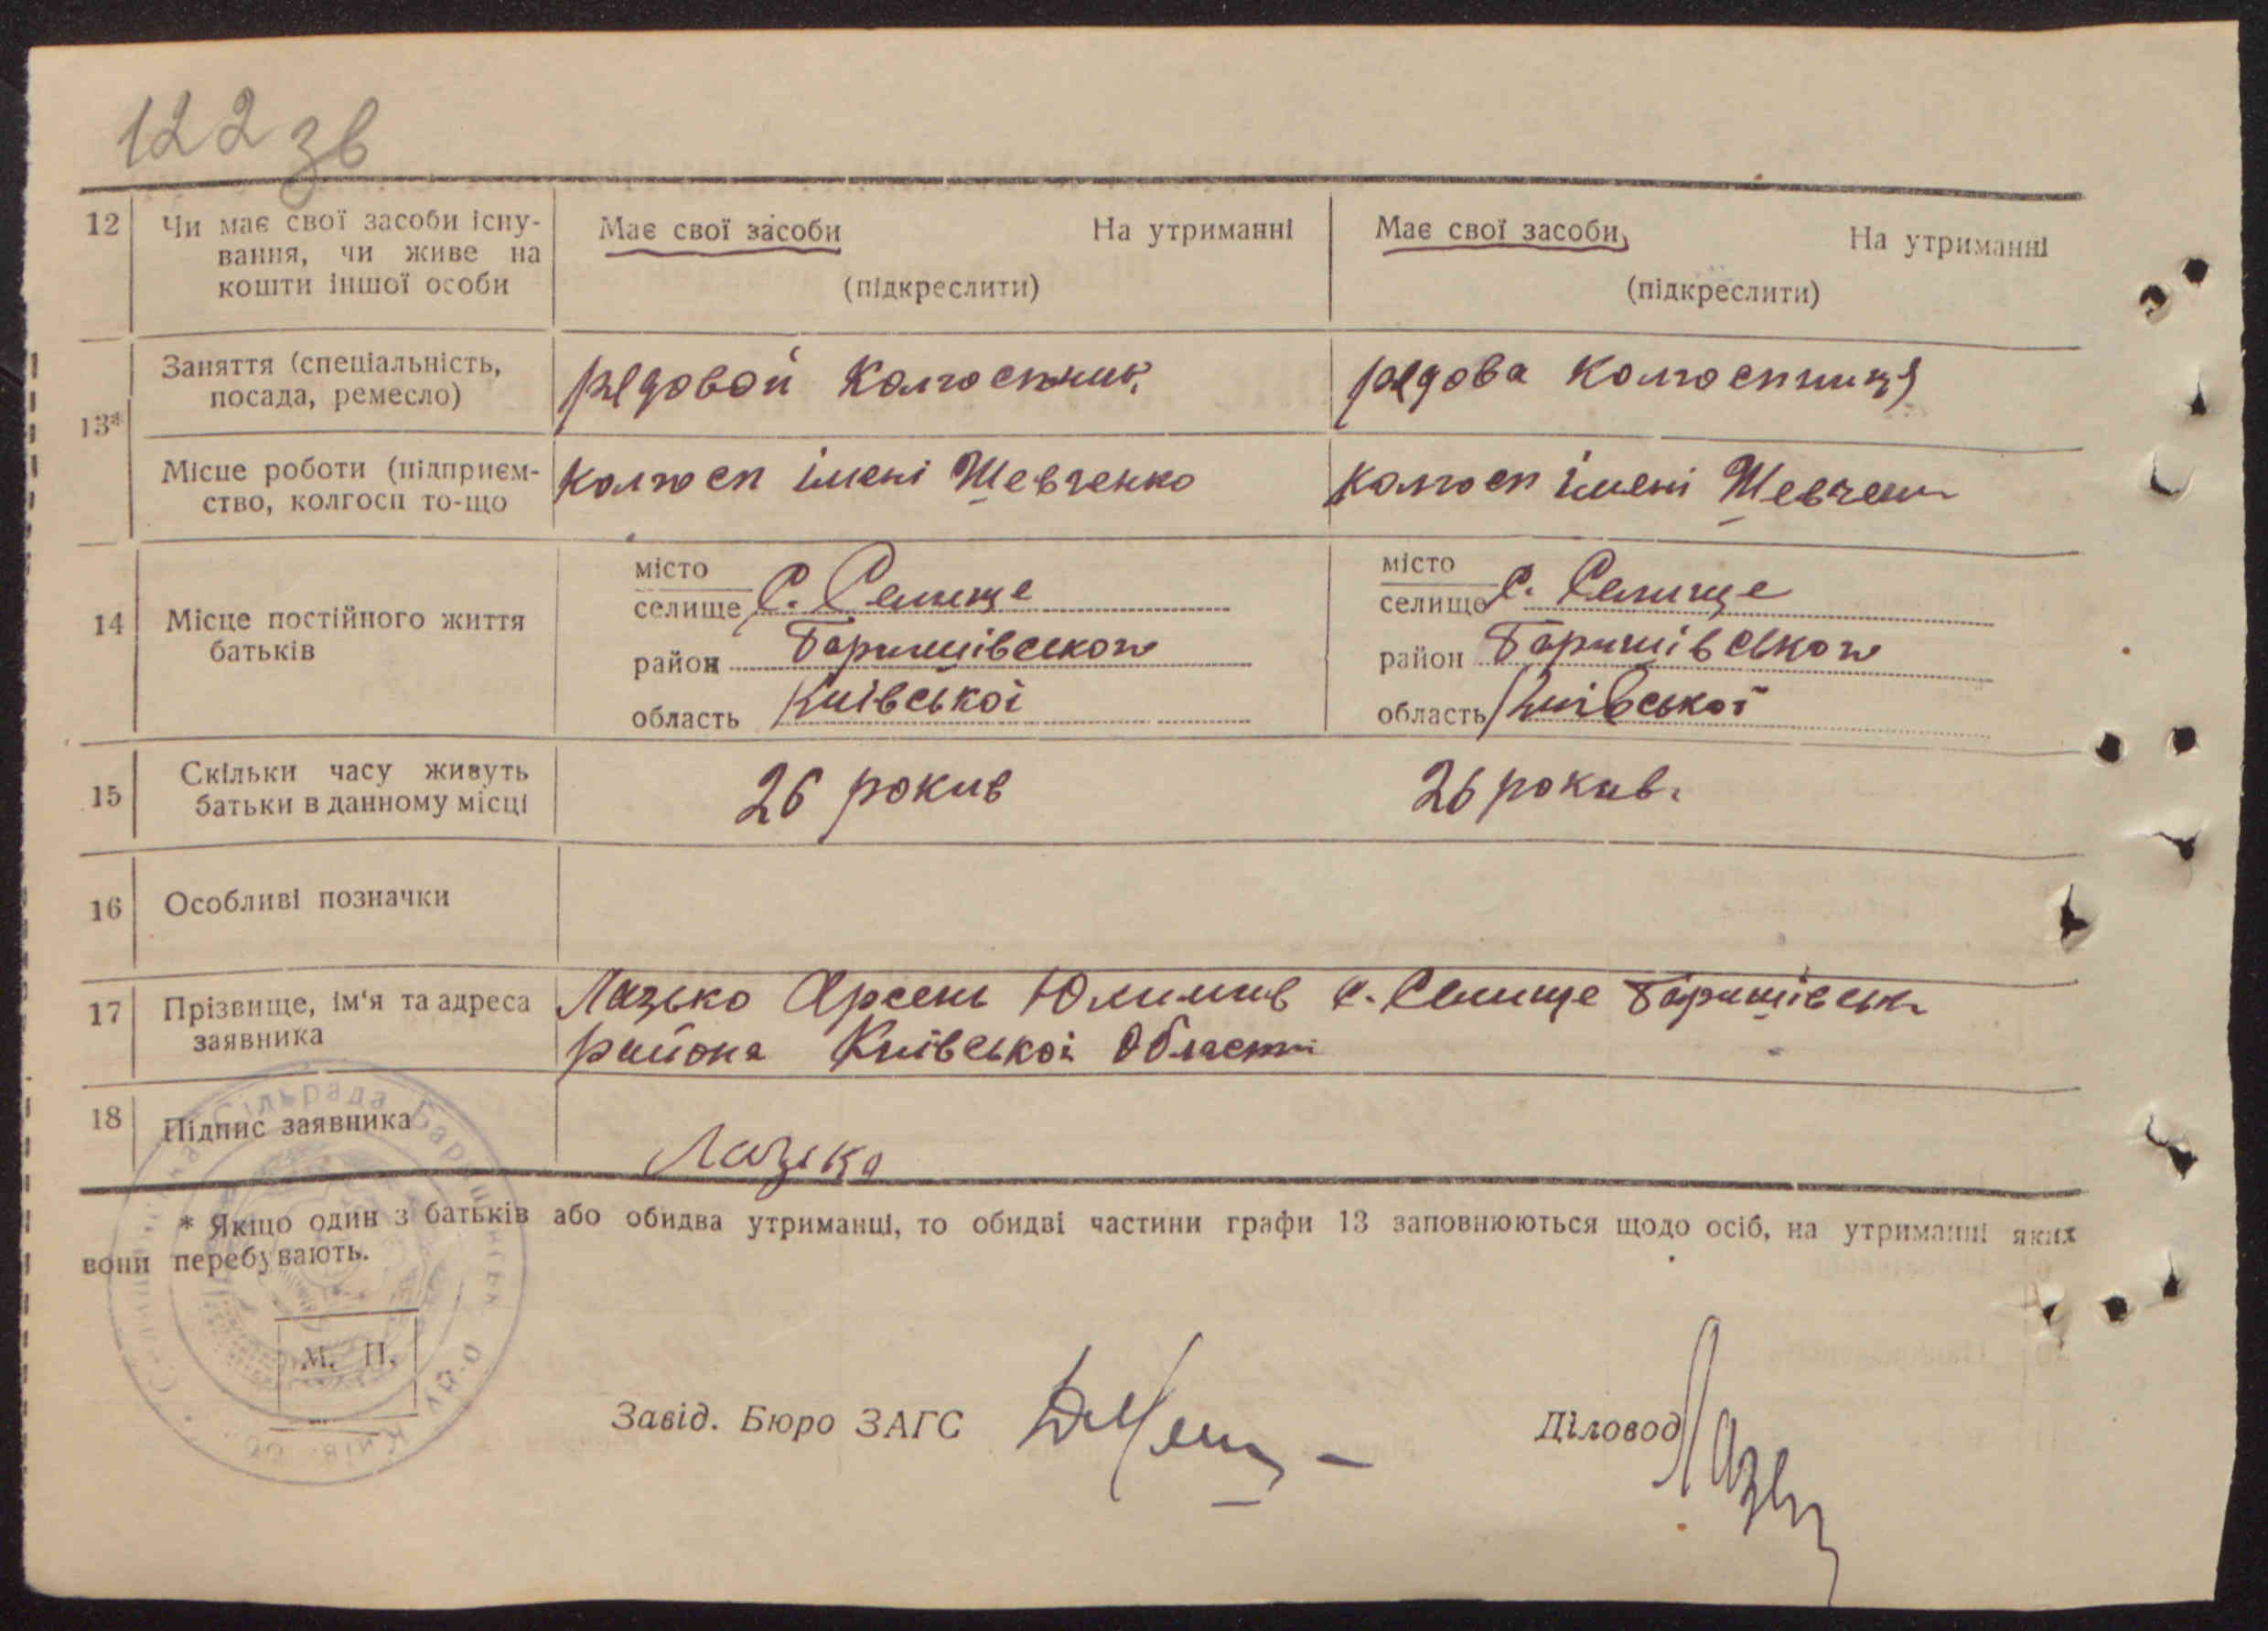 122 зв
12 Чи має свої засоби існу- Має свої засоби На утриманні Має свої засоби На утриманні
вання, чи живе на
кошти іншої особи (підкреслити) (підкреслити)
13* Заняття (спеціальність, рядовой колгоспник рядова колгоспниця
посада, ремесло)
Місце роботи (підприєм- колгосп імені Шевченко колгосп імені Шевченко
ство, колгосп то-що
14 Місце постійного життя батьків
місто
селище С. Селище
район Баришівського
область Київської
місто
селище С. Селище
район Баришівського
область Київської
15 Скільки часу живуть 26 рокив 26 рокив.
батьки в данному місці
16 Особливі позначки
17 Прізвище, ім'я та адреса Лазько Арсень с. Селище Баришівськ
заявника района Київської Області
18 Підпис заявника Лазько
* Якщо один з батьків або обидва утриманці, то обидві частини графи 13 заповнюються щодо осіб, на утриманні яких
вони перебувають.
М. П.
Сільрада
Завід. Бюро ЗАГС
Діловод